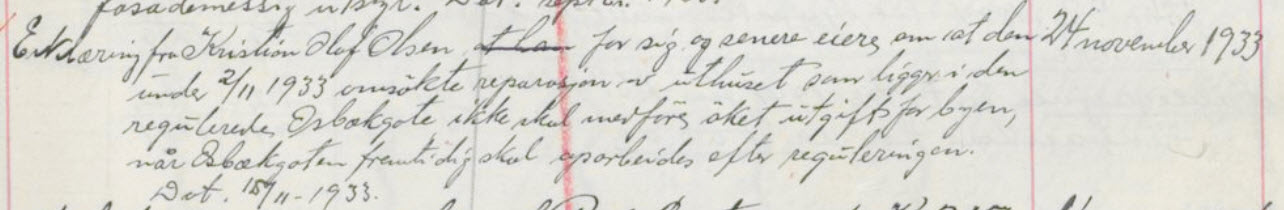 fasademessig utstyr. Dat. septbr.
Erklæring fra Kristian Olaf Olsen at han for sig og senere eiere om at den 24 november 1933
under 2/11 1933 omsøkte reparasjon av uthuset som ligger i den
regulerede Osbækgate ikke skal medføre øket utgift for byen,
når Osbækgaten fremtidig skal oparbeides efter reguleringen.
Dat. 15/11 - 1933.